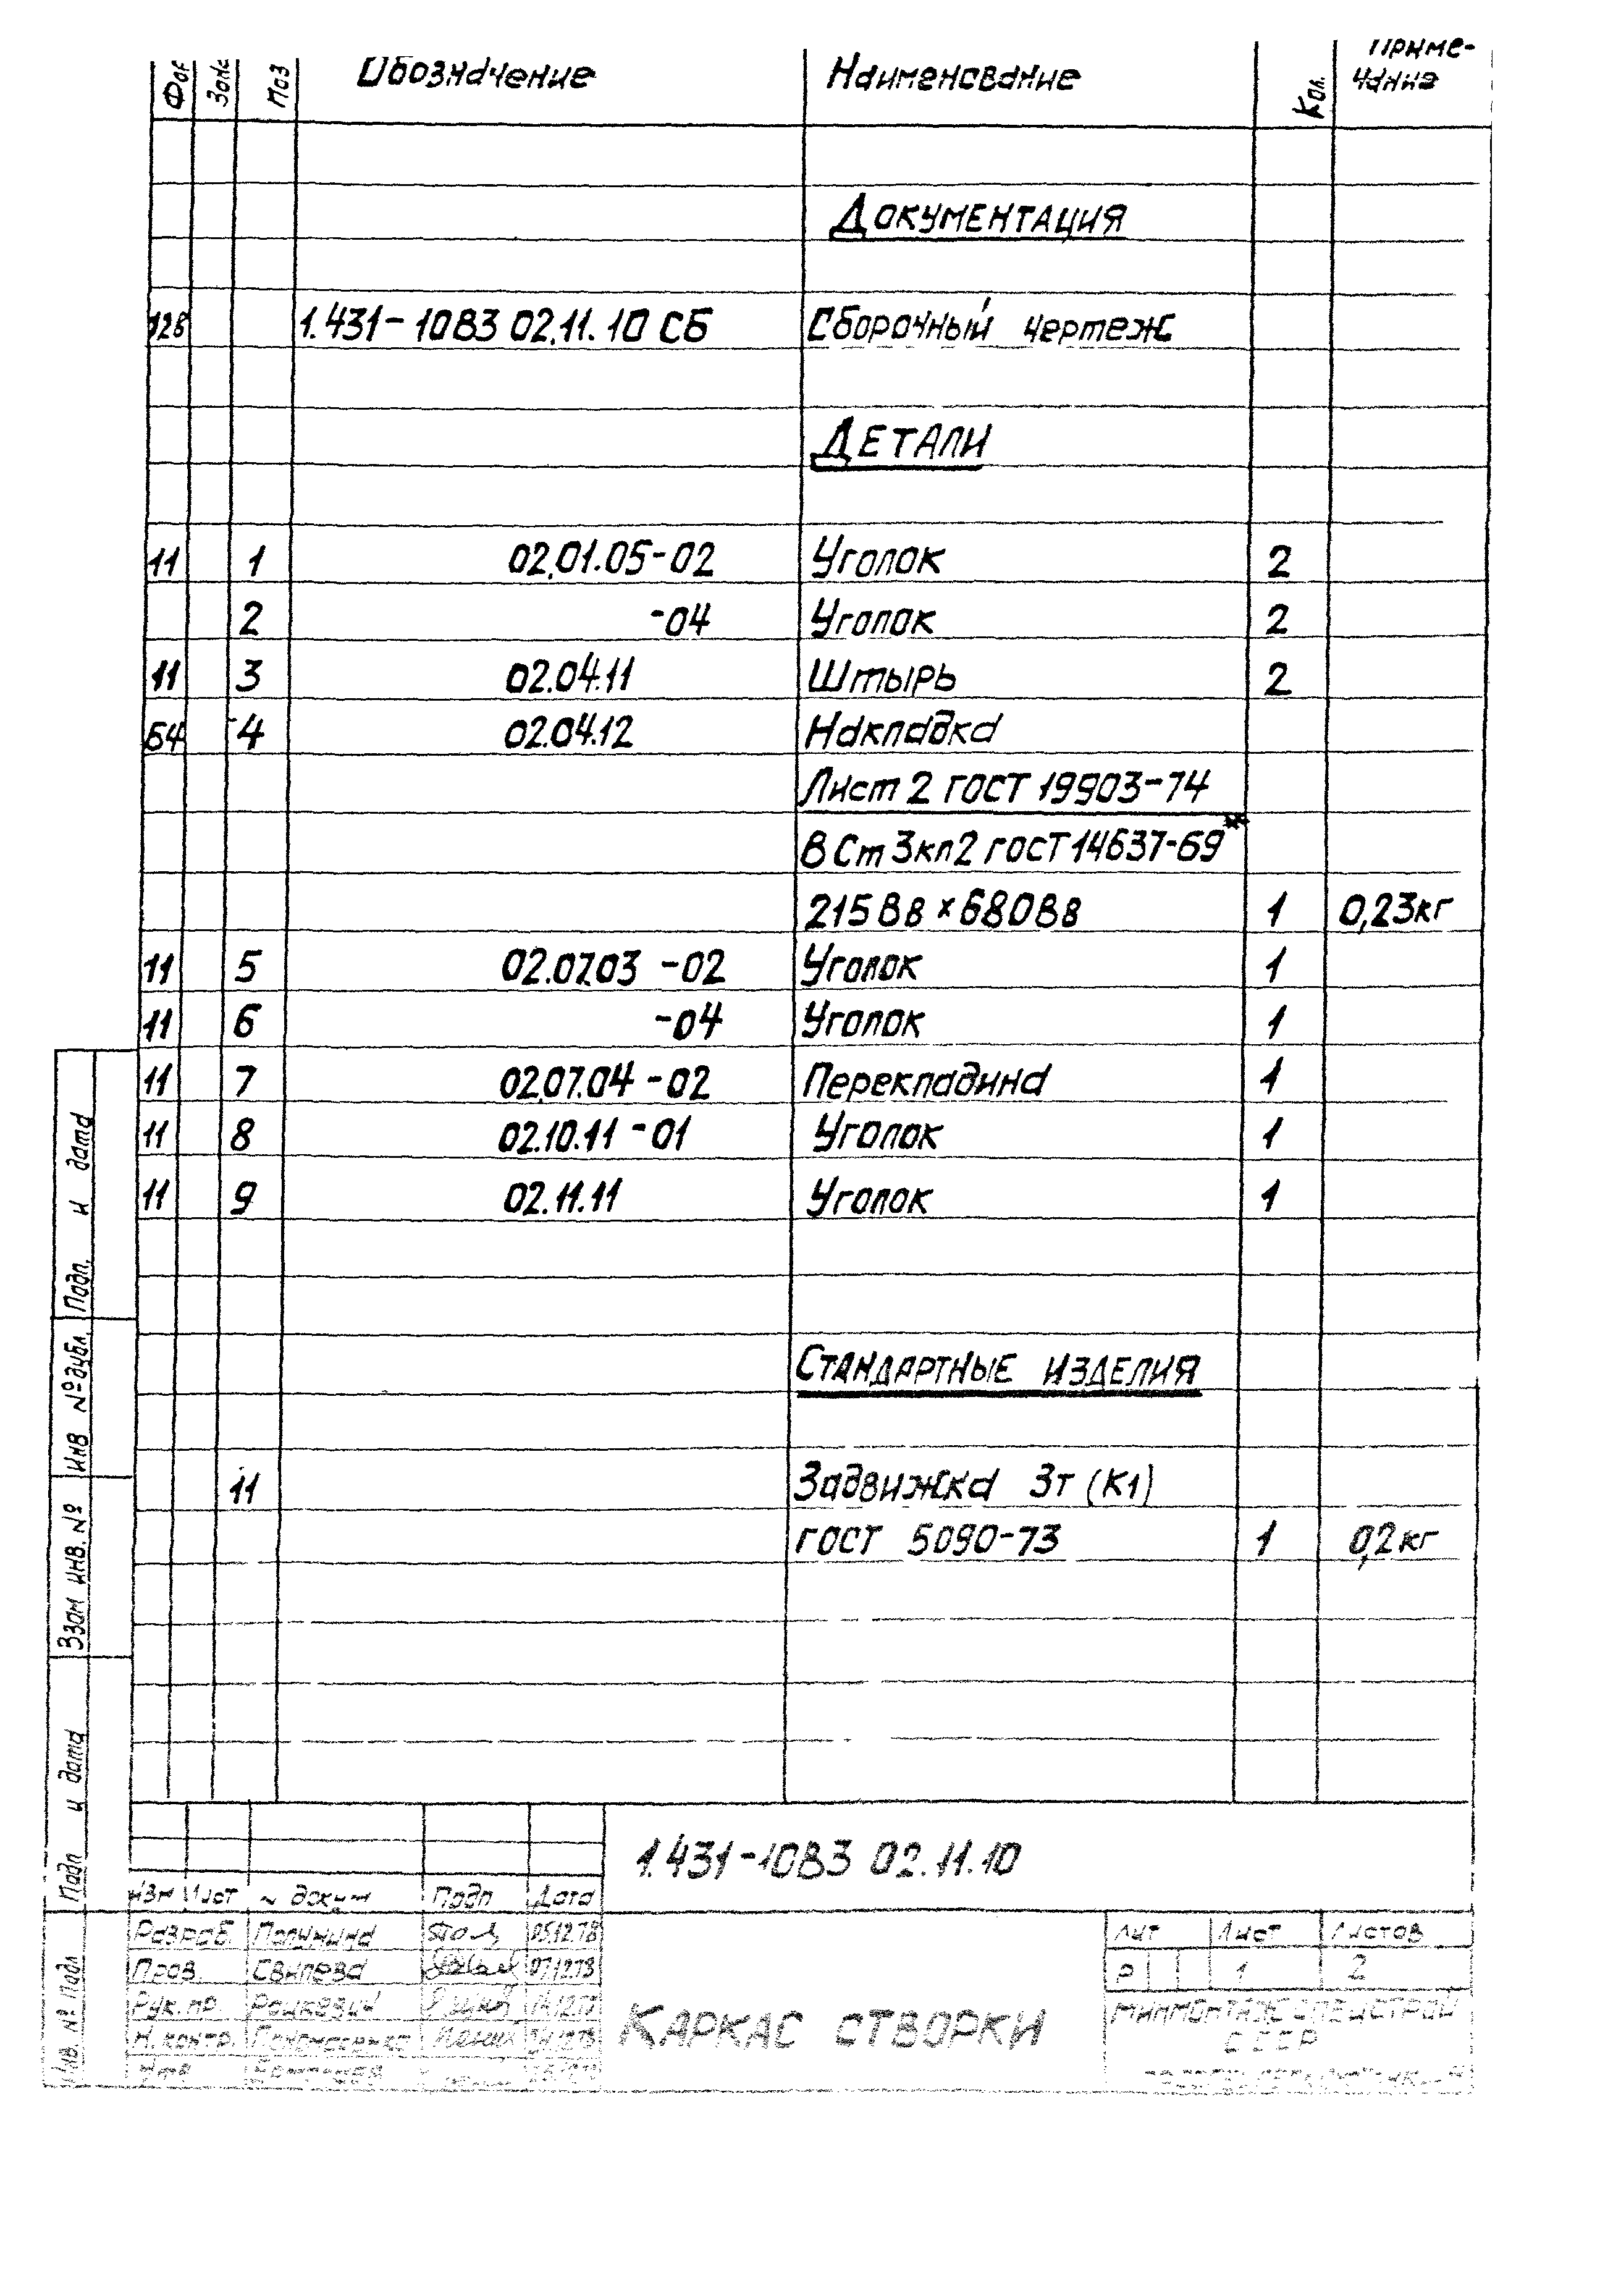 Фор Зона Поз Обозначение Наименование Кол. Приме-
чание
Документация
12В 1.431-10В3 02.11.10 СБ Сборочный чертеж
Детали
11 1 02.01.05-02 Уголок 2
2 -04 Уголок 2
11 3 02.04.11 Штырь 2
Б4 4 02.04.12 Накладка
Лист 2 ГОСТ 19903-74
В Ст 3кп2 ГОСТ 14637-69*
215 В8 × 680 В8 1 0,23кг
11 5 02.07.03 -02 Уголок 1
11 6 -04 Уголок 1
11 7 02.07.04 -02 Перекладина 1
11 8 02.10.11 -01 Уголок 1
11 9 02.11.11 Уголок 1
Стандартные изделия
11 Задвижка 3т (К1)
ГОСТ 5090-73 1 0,2кг
Подп. и дата
Инв № дубл.
Взам инв. №
Подп и дата
Инв. № подл
1.431-10В3 02.11.10
Изм Лист № докум Подп Дата
Разраб. Полунина 05.12.78
Пров. 07.12.78
Рук. пр. Рацкевич
Н. контр.
Утв
Каркас створки
Лит Лист Листов
Р 1 2
Минмонтажспецстрой
СССР